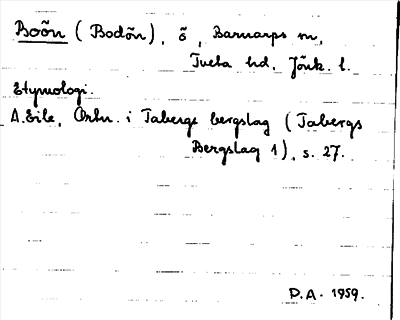 Boön (Bodön), ö, Barnarps sn,
Tveta hd, Jönk. l.
Etymologi.
A. Eile, Ortn. i Tabergs bergslag (Tabergs
Bergslag 1), s. 27.
D.A. 1959.